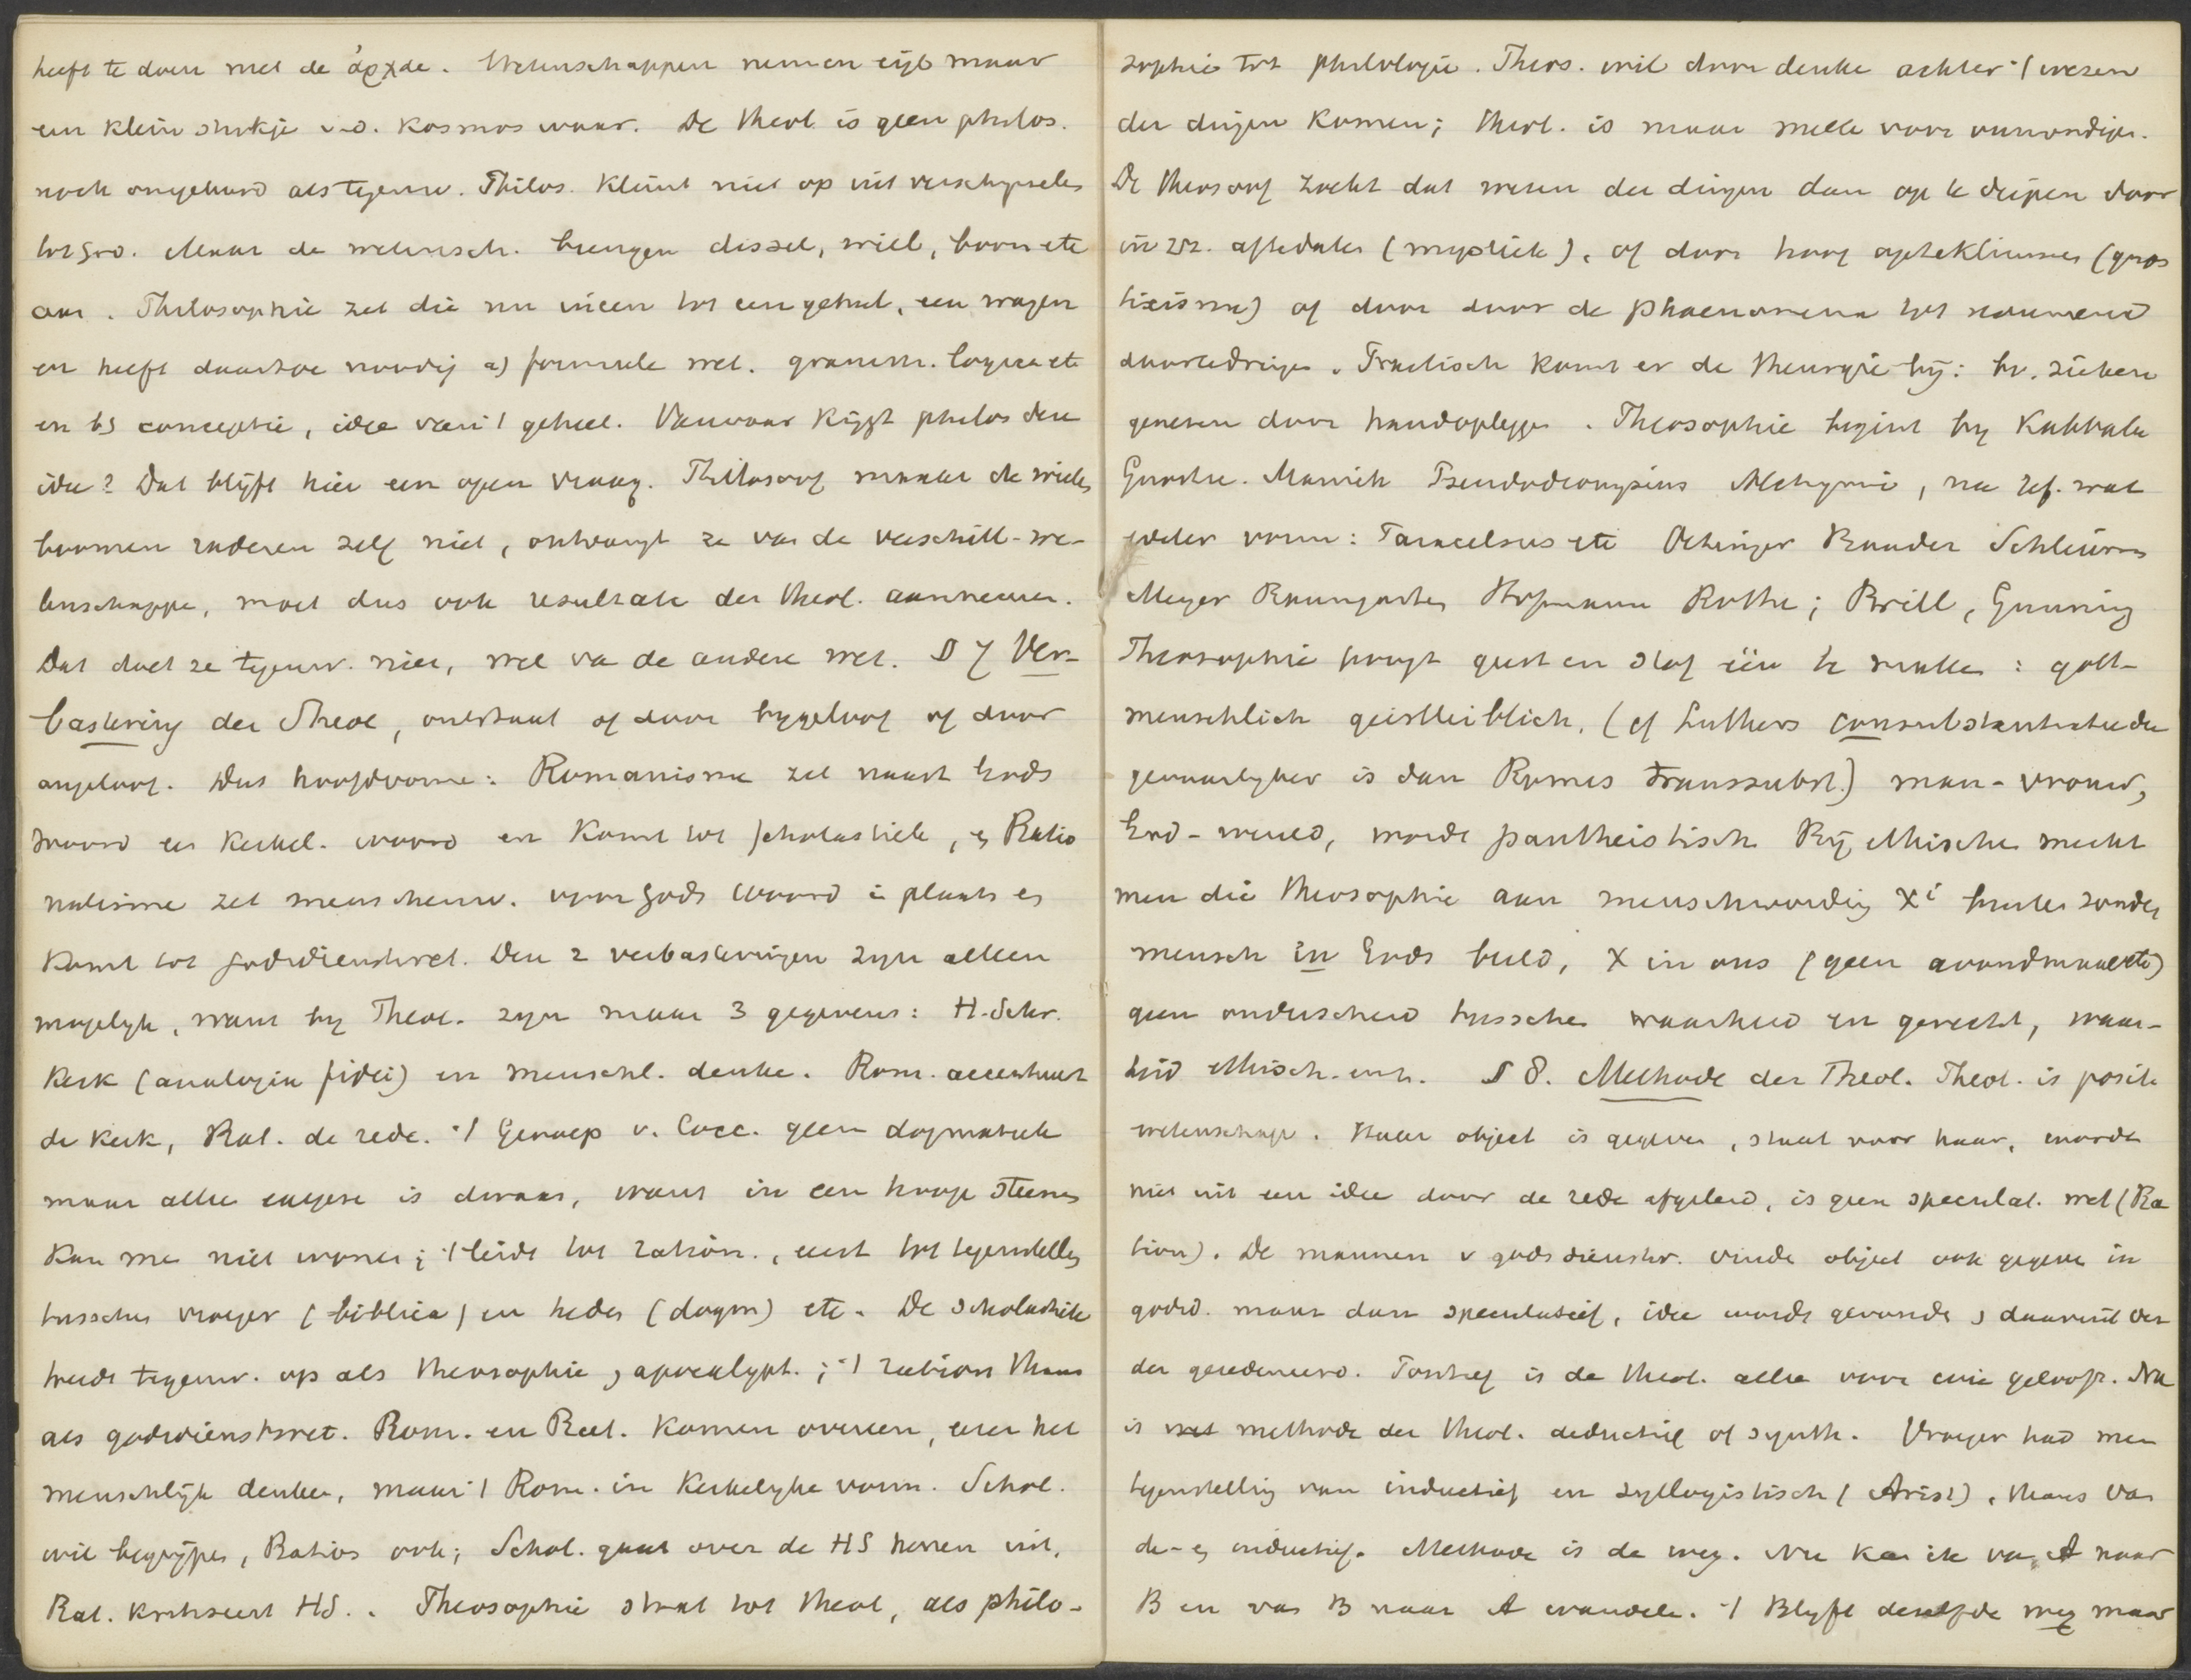 heeft te doen met de ἀρχαι. Wetenschappen nemen elk maar
een klein stukje v.d. Kosmos waar. De theol. is geen philos.
noch omgekeerd als tegenw. Philos. klimt niet op uit verschijnselen
tot God. Maar de wetensch. brengen dissel, wiel, boom etc
aan. Philosophie zet die nu ineen tot een geheel, een wagen
en heeft daartoe noodig a) formeele wet. gramm. logica etc
en b) conceptie, idee van 't geheel. Vanwaar krijgt philos den
idee? Dat blijft hier een open vraag. Philosoof maakt de wielen
boomen raderen zelf niet, ontvangt ze van de verschill. we-
tenschappen, moet dus ook resultaten der theol. aannemen.
Dat doet ze tegenw. niet, wel van de andere wet. § 7 Ver-
bastering der Theol, ontstaat of door bijgeloof of door
ongeloof. Dus hoofdvorme: Romanisme zet naast Gods
woord een kerkel. woord en komt tot scholastiek, en Ratio
nalisme zet menschenw. voor Gods woord in plaats en
komt tot godsdienstwet. Deze 2 verbasteringen zijn alleen
mogelijk, want bij Theol. zijn maar 3 gegevens: H. Schr.
Kerk (analogia fidei) en menschl. denken. Rom. accentueert
de Kerk, Rat. de rede. 't Geroep v. Cocc. geen dogmatiek
maar alleen exegese is dwaas, want in een hoop steenen
kan men niet wonen; 't leidt tot ration., eerst tot tegenstelling
tusschen vroeger (biblica) en heden (dogm) etc. De scholastiek
treedt tegenw. op als theosophie, apocalypt.; 't ration. thans
als godsdienstwet. Rom. en Rat. komen overeen, eren het
menschlijk denken, maar 't Rom. in kerkelijke vorm. Schol.
wil begrijpen, Ration ook; Schol. gaat over de HS henen uit,
Rat. kritiseert HS. Theosophie staat tot theol, als philo-
sophie tot philologie. Theos. wil door denken achter 't wezen
der dingen komen; theol. is maar melk voor onmondigen.
De theosoof zoekt dat wezen der dingen dan op te diepen door
in zich afte dalen (mystiek), of door hoog opteklimmen (gnos
ticisme) of door door de phaenomena tot noumena
doortedringen. Practisch komt er de theurgie bij: bv. zieken
genezen door handoplegging. Theosophie begint bij Kabbala
Gnostic. Manich Pseudodionysius Alchymie, na Ref. wat
edeler vorm: Paracelsus etc Oetinger Baader
Meyer Baumgarten Hofmann Rothe; Brill, Gunning
Theosophie poogt geest en stof één te maken: gott-
menschlich geistleiblich. (cf Luthers consubstantiatie die
gevaarlijker is dan Romes transsubst.) man-vrouw,
God-wereld, wordt pantheistisch. Bij ethischen merkt
men die theosophie aan menschwording Xi buiten zonde,
mensch in Gods beeld, X in ons (geen avondmaal etc)
geen onderscheid tusschen waarheid en gerecht, waar-
heid ethisch. enz. § 8. Methode der Theol. Theol. is positi
wetenschap. Haar object is gegeven, staat voor haar, wordt
niet uit een idee door de rede afgeleid, is geen speculat. wet (Ra
tion). De mannen v godsdienstw. vinde object ook gegeven in
godsd. maar dan speculatief, idee wordt gevonden, daaruit ver
der geredeneerd. Positief is de theol. alleen voor wie gelooft. Nu
is methode der theol. deductief of synth. Vroeger had men
tegenstelling van inductief en syllogistisch (Arist), thans van
de- en inductief. Methode is de weg. Nu kan ik van A naar
B en van B naar A wandelen. 't Blijft dezelfde weg maar